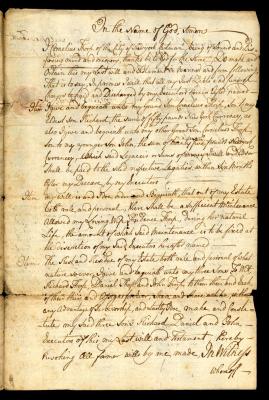 In the Name of God, Amen
I Cornelius of the City of New york being of Sound and
and memory, thanks be to God for the Same, Do make and
Ordain this my last will and Testament in manner and form following
That is to say, Imprimis I will that all my Just Debts and funeral
Charges be paid and Discharged by my Executors herein after named
Item I give and bequeath unto my Grand Son Cornelius Son of my
Son the Sum of fifty pounds New york Currency, as
also I give and bequeath unto my other Grand Son Cornelius
Son to my younger Son John, the Sum of pounds
Currency, which Said Legacies or Sums of money I will
Shall be paid to the Said respective Legatees within Six Months
After my Decease, by my Executors
Item my will is and I do hereby order & Bequeath, that out of my Estate
both real and personal, there Shall be a Sufficient Maintenance
allowed my Loving wife During her natural
Life, the amount of which Said maintenance is to be
at the discretion of my Said Executors hereafter named
Item The Rest and Residue of my Estate both real and personal of what
nature soever I give and bequeath unto my three Sons
Richard Daniel and John to them their and each
of their Heirs and Share and Share alike without
any Advantage of Survivorship, and Lastly I make and
my Said three Sons Richard, Daniel and John
Executors of this my Last will and Testament hereby
Revoking all former wills by me made In Witness
whereof